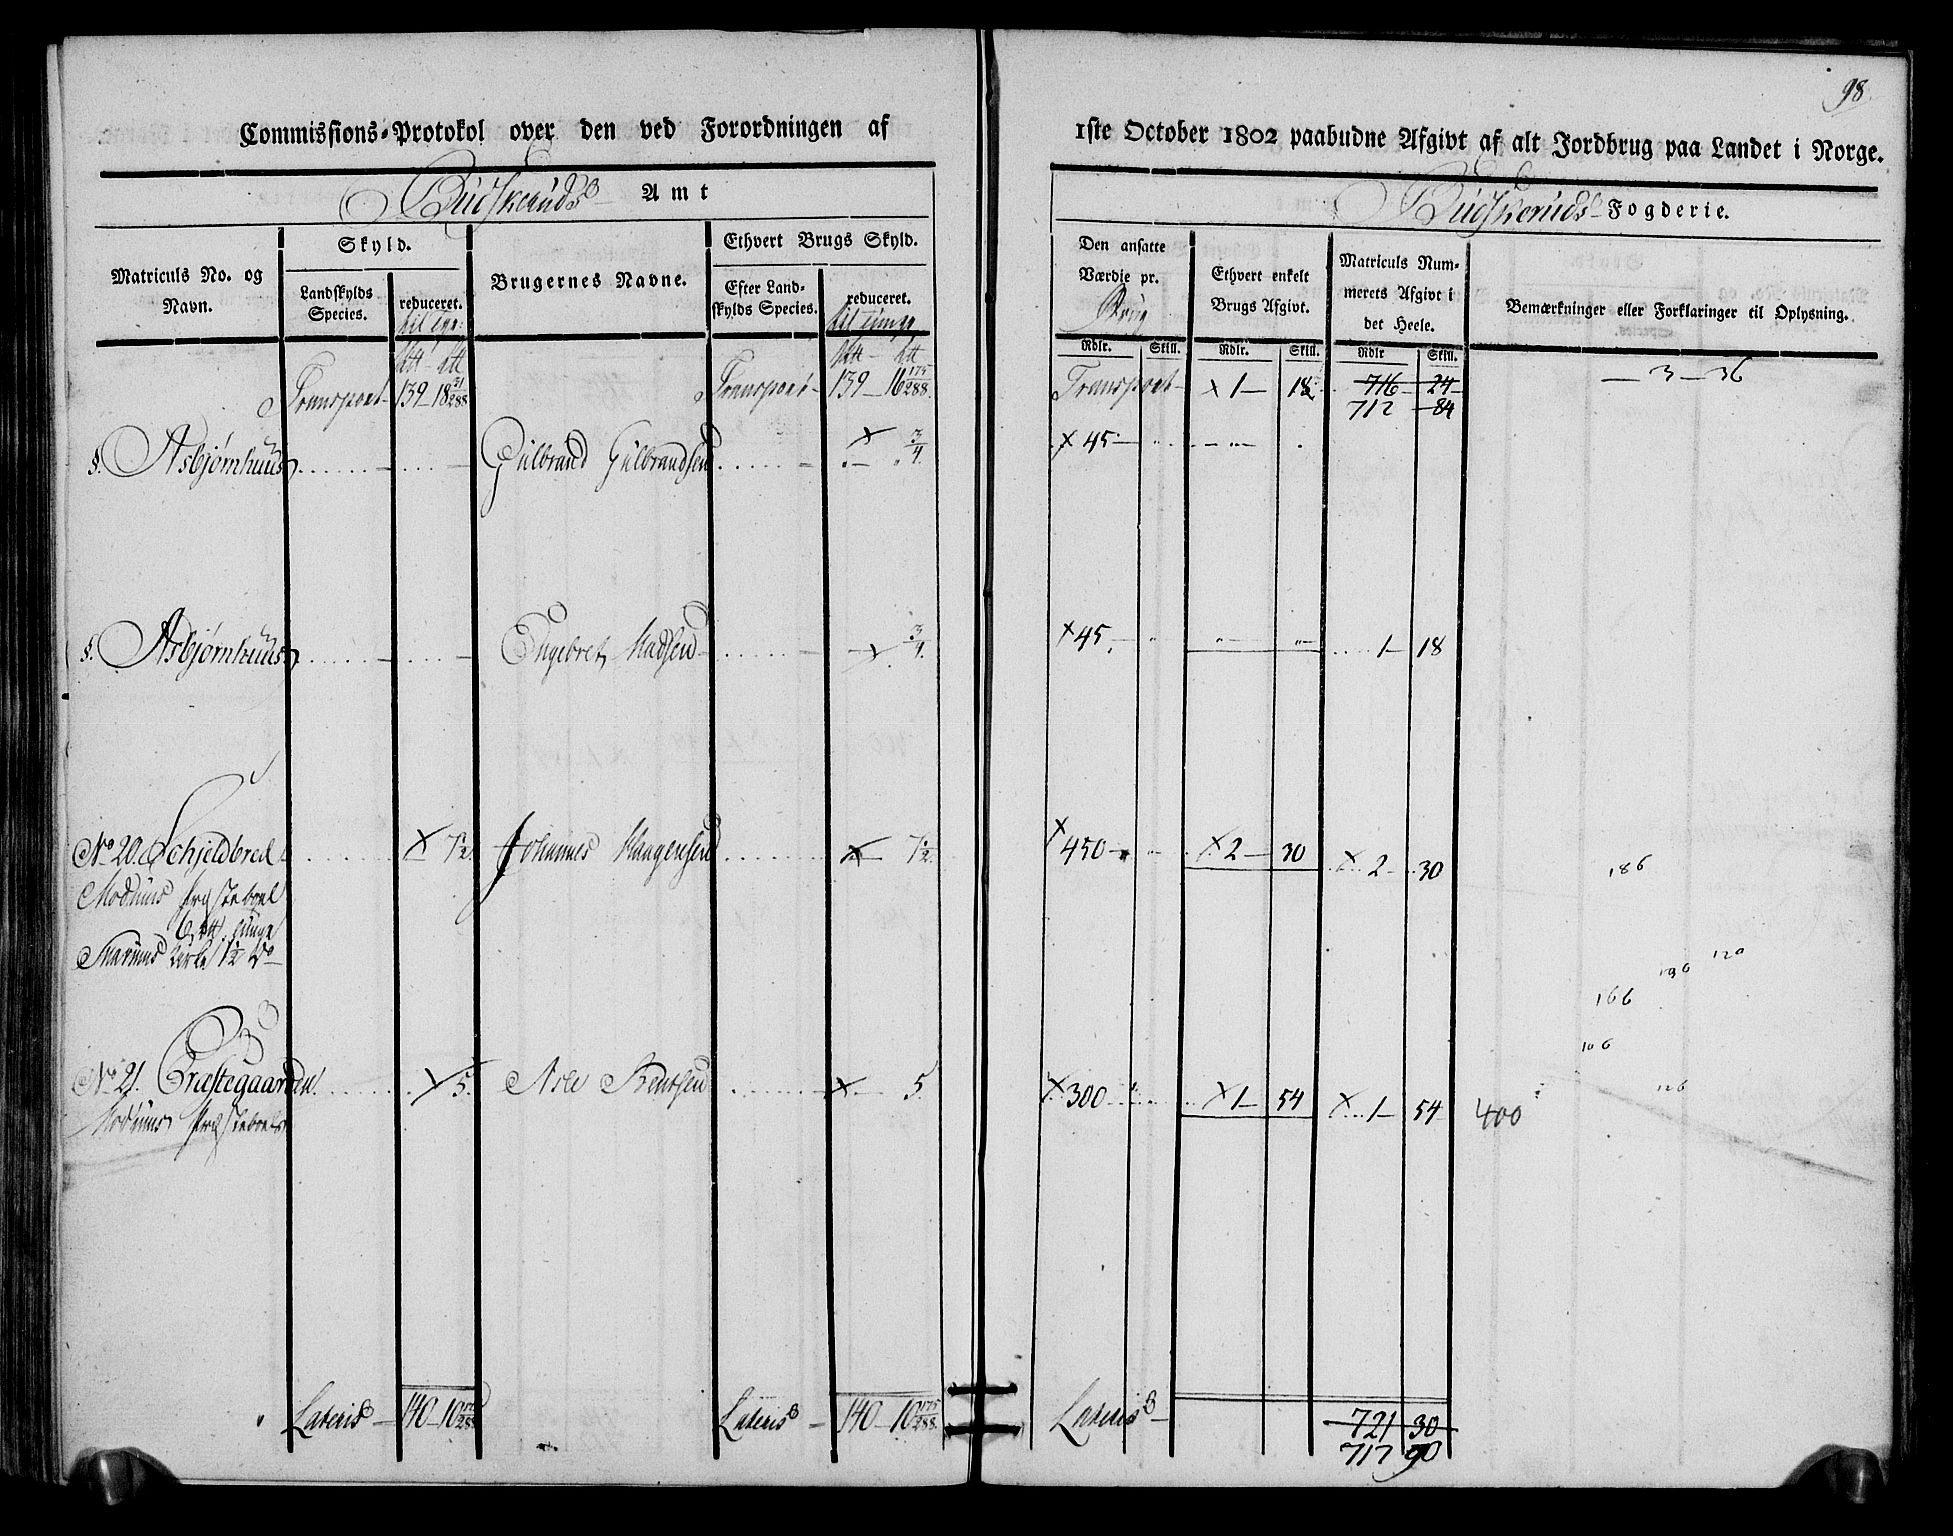 98.
Commissions-Protokol over den ved Forordningen af 1ste October 1802 paabudne Afgivt af alt Jordbrug paa Landet i Norge.
Budskeruds Amt
Budskeruds Fogderie.
Matriculs No. og Navn.
Skyld.
Landskylds Species.
reduceret.
Brugernes Navne.
Ethvert Brugs Skyld.
Efter Landskylds Species.
reduceret.
til Tunge
Den ansatte Værdie pr. Brug
Ethvert enkelt Brugs Afgivt.
Matriculs Nummerets Afgivt i det Heele.
Bemærkninger eller Forklaringer til Oplysning.
Rdlr. Skill. Rdlr. Skill. Rdlr Skill.
Transport 139 18 51/288 Transport 139 16 175/288 Transport x 1 18 716 24 3 36
712 84
§. Asbjørnhuus Gulbrand Gulbrandsen x 3/4. x 45
§. Asbjørnhuus Engebret Madsen x 3/4. x 45 1 18
No 20. Schjeldbred x 7 1/2 Johannes Haagensen x 7 1/2. x 450 x 2 30 x 2 30 186
Modums Præsteboel
6 tunge
Snarums Kirke 1 1/2 do
196 120
166
106
No 21. Præstegaarden x 5. Asle Bentsen x 5. x 300 x 1 54 x 1 54 400 126
Modums Præsteboel
Lateris 140 10 175/288 Lateris 140 10 175/288. Lateris 721 30
717 90